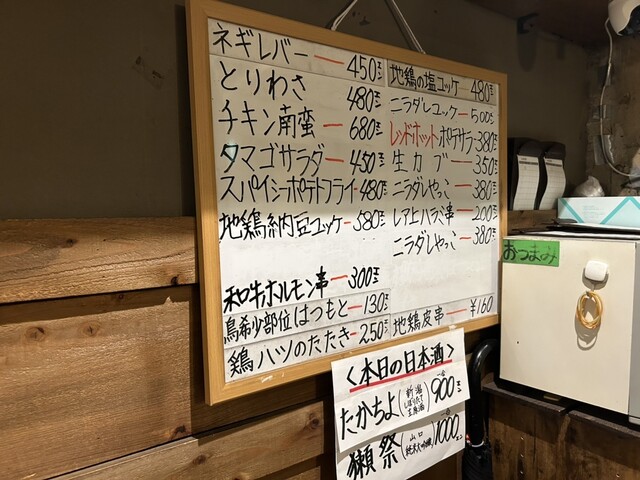 ネギレバー 450円
とりわさ 480円
チキン南蛮 680円
タマゴサラダ 450円
スパイシーポテトフライ 480円
地鶏納豆ユッケ 580円
和牛ホルモン串 300円
鳥希少部位はつもと 130円
鶏ハツのたたき 250円
地鶏の塩ユッケ 480円
ニラダレユッケ 500円
レッドホットポテサラ 380
生カブ 350
ニラダレやっこ 380
レア上ハラミ串 200
ニラダレやっこ 380
地鶏皮串 ¥160
おつまみ
〈本日の日本酒〉
たかちよ(新潟 しぼりたて 生原酒) 一合 900円
獺祭(山口 純米大吟醸) 一合 1000円